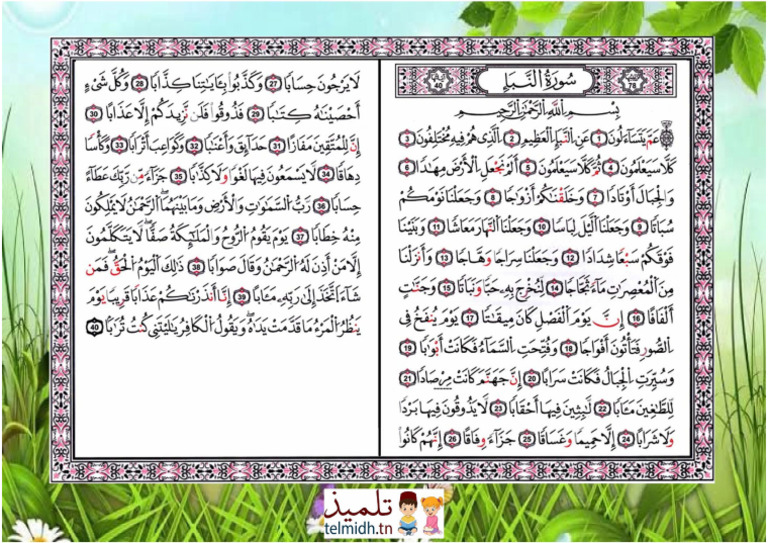 سُورَةُ النَّبَإِ
78
40
بِسْمِ اللَّهِ الرَّحْمَٰنِ الرَّحِيمِ
عَمَّ يَتَسَاءَلُونَ 1 عَنِ النَّبَإِ الْعَظِيمِ 2 الَّذِي هُمْ فِيهِ مُخْتَلِفُونَ 3
كَلَّا سَيَعْلَمُونَ 4 ثُمَّ كَلَّا سَيَعْلَمُونَ 5 أَلَمْ نَجْعَلِ الْأَرْضَ مِهَٰدًا 6
وَالْجِبَالَ أَوْتَادًا 7 وَخَلَقْنَٰكُمْ أَزْوَٰجًا 8 وَجَعَلْنَا نَوْمَكُمْ
سُبَاتًا 9 وَجَعَلْنَا الَّيْلَ لِبَاسًا 10 وَجَعَلْنَا النَّهَارَ مَعَاشًا 11 وَبَنَيْنَا
فَوْقَكُمْ سَبْعًا شِدَادًا 12 وَجَعَلْنَا سِرَاجًا وَهَّاجًا 13 وَأَنزَلْنَا
مِنَ الْمُعْصِرَٰتِ مَاءً ثَجَّاجًا 14 لِّنُخْرِجَ بِهِ حَبًّا وَنَبَاتًا 15 وَجَنَّٰتٍ
أَلْفَافًا 16 إِنَّ يَوْمَ الْفَصْلِ كَانَ مِيقَٰتًا 17 يَوْمَ يُنفَخُ فِي
الصُّورِ فَتَأْتُونَ أَفْوَاجًا 18 وَفُتِّحَتِ السَّمَاءُ فَكَانَتْ أَبْوَٰبًا 19
وَسُيِّرَتِ الْجِبَالُ فَكَانَتْ سَرَابًا 20 إِنَّ جَهَنَّمَ كَانَتْ مِرْصَادًا 21
لِّلطَّٰغِينَ مَـَٔابًا 22 لَّٰبِثِينَ فِيهَا أَحْقَابًا 23 لَّا يَذُوقُونَ فِيهَا بَرْدًا
وَلَا شَرَابًا 24 إِلَّا حَمِيمًا وَغَسَاقًا 25 جَزَاءً وِفَاقًا 26 إِنَّهُمْ كَانُوا
لَا يَرْجُونَ حِسَابًا 27 وَكَذَّبُوا بِـَٔايَٰتِنَا كِذَّابًا 28 وَكُلَّ شَيْءٍ
أَحْصَيْنَٰهُ كِتَٰبًا 29 فَذُوقُوا فَلَن نَّزِيدَكُمْ إِلَّا عَذَابًا 30
إِنَّ لِلْمُتَّقِينَ مَفَازًا 31 حَدَائِقَ وَأَعْنَٰبًا 32 وَكَوَاعِبَ أَتْرَابًا 33 وَكَأْسًا
دِهَاقًا 34 لَّا يَسْمَعُونَ فِيهَا لَغْوًا وَلَا كِذَّابًا 35 جَزَاءً مِّن رَّبِّكَ عَطَاءً
حِسَابًا 36 رَبُّ السَّمَٰوَٰتِ وَالْأَرْضِ وَمَا بَيْنَهُمَا الرَّحْمَٰنُ لَا يَمْلِكُونَ
مِنْهُ خِطَابًا 37 يَوْمَ يَقُومُ الرُّوحُ وَالْمَلَٰئِكَةُ صَفًّا لَّا يَتَكَلَّمُونَ
إِلَّا مَنْ أَذِنَ لَهُ الرَّحْمَٰنُ وَقَالَ صَوَابًا 38 ذَٰلِكَ الْيَوْمُ الْحَقُّ فَمَن
شَاءَ اتَّخَذَ إِلَىٰ رَبِّهِ مَـَٔابًا 39 إِنَّا أَنذَرْنَٰكُمْ عَذَابًا قَرِيبًا يَوْمَ
يَنظُرُ الْمَرْءُ مَا قَدَّمَتْ يَدَاهُ وَيَقُولُ الْكَافِرُ يَٰلَيْتَنِي كُنتُ تُرَٰبًا 40
تلميذ
telmidh.tn